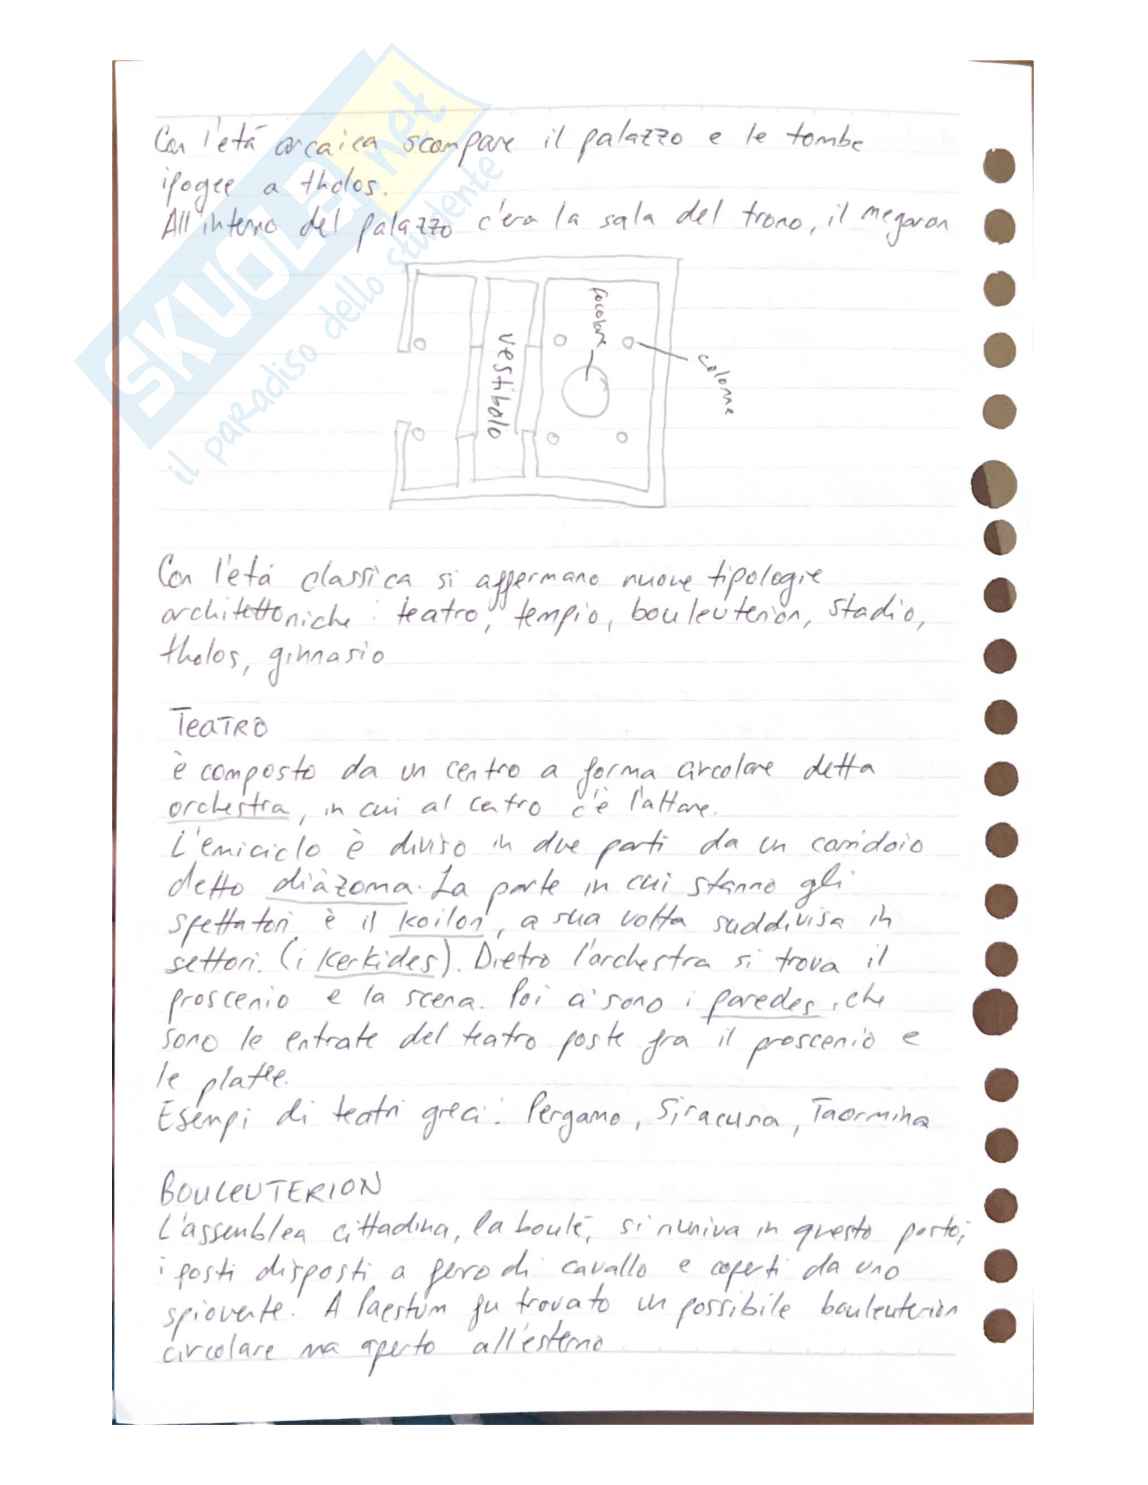 Con l'etá arcaica scompare il palazzo e le tombe
ipogee a tholos.
All'interno del palazzo c'era la sala del trono, il megaron
focolare
vestibolo
colonne
Con l'etá classica si affermano nuove tipologie
architettoniche: teatro, tempio, bouleuterion, stadio,
tholos, ginnasio
TEATRO
è composto da un centro a forma circolare detta
orchestra, in cui al centro c'è l'altare.
L'emiciclo è diviso in due parti da un corridoio
detto diàzoma. La parte in cui stanno gli
spettatori è il koilon, a sua volta suddivisa in
settori. (i kerkides). Dietro l'orchestra si trova il
proscenio e la scena. Poi ci sono i paredes, che
sono le entrate del teatro poste fra il proscenio e
le platee.
Esempi di teatri greci: Pergamo, Siracusa, Taormina
BOULEUTERION
L'assemblea cittadina, la boulé, si riuniva in questo posto;
i posti disposti a ferro di cavallo e coperti da uno
spiovente. A Paestum fu trovato un possibile bouleuterion
circolare ma aperto all'esterno
SKUOLA.net
il paradiso dello studente